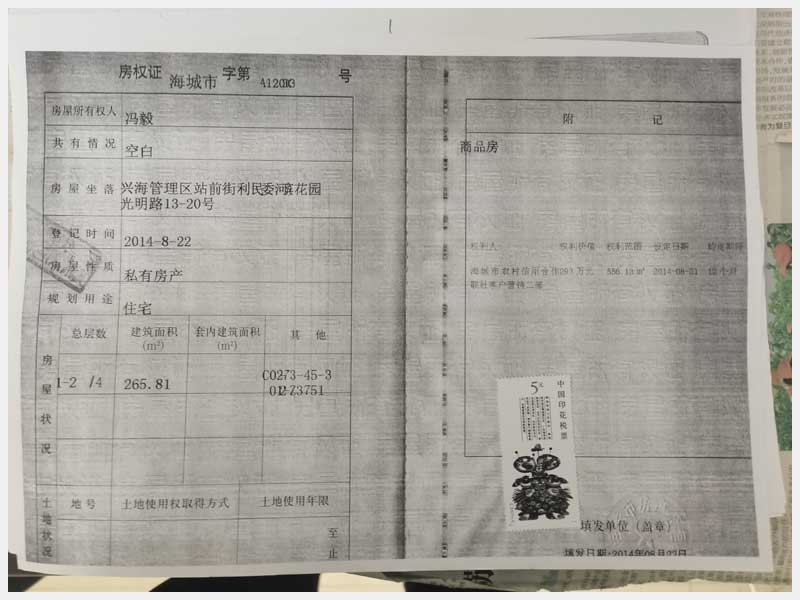 房权证 海城市 字第 号
房屋所有权人 冯毅
共有情况 空白
房屋坐落 兴海管理区站前街利民委河滨花园
光明路13-20号
登记时间 2014-8-22
房屋性质 私有房产
规划用途 住宅
房屋状况
总层数 建筑面积(m²) 套内建筑面积(m²) 其他
1-2 /4 265.81
土地状况
地号 土地使用权取得方式 土地使用年限
至
止
附 记
商品房
权利人 权利价值 权利范围 设定日期
海城市农村信用合作 2014-08-21
5元
中国印花税票
填发单位(盖章)
填发日期:2014年08月22日